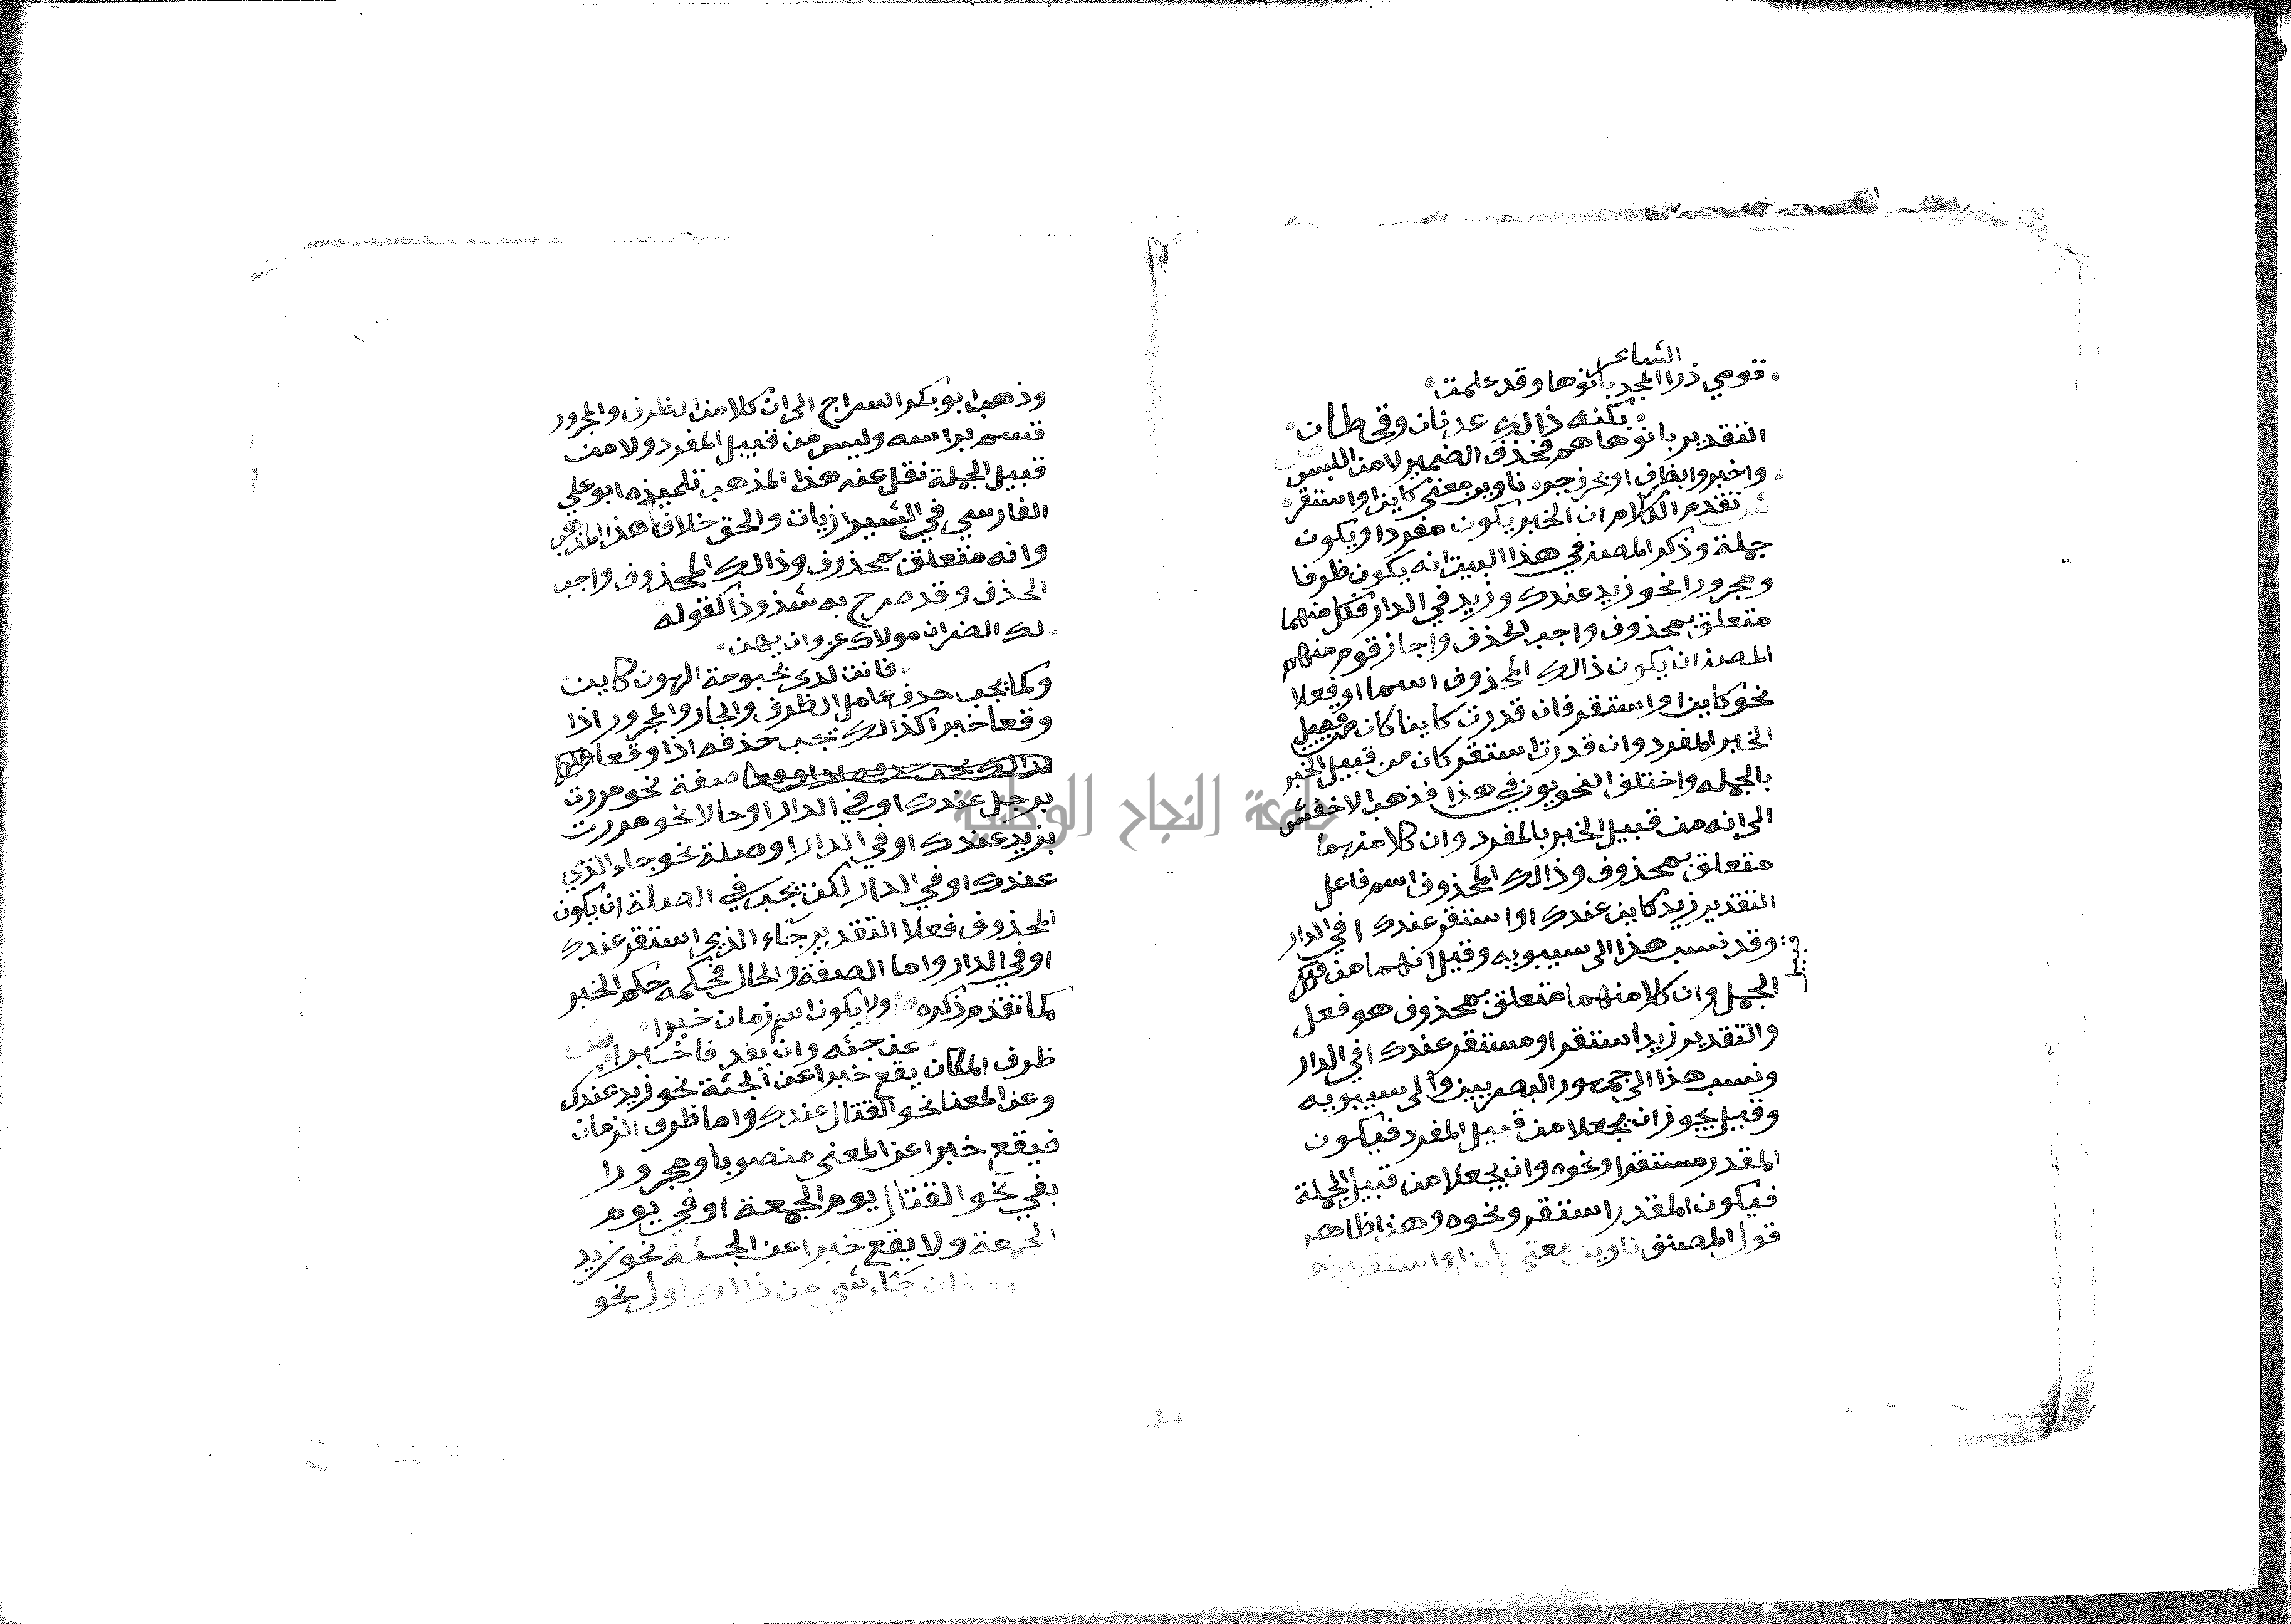 الشاعر
قومي ذرا المجد بانوها وقد علمت
بكنه ذالك عدنان وقحطان
التقدير بانوها هم فحذف الضمير لامن اللبس
واخبروا بظرف او بحرف جر ناوين معنى كاين او استقر
تقدم الكلام ان الخبر يكون مفردا ويكون
جملة وذكر المصنف في هذا البيت انه يكون ظرفا
ومجرورا نحو زيد عندك وزيد في الدار فكل منهما
متعلق بمحذوف واجب الحذف واجاز قوم منهم
المصنف ان يكون ذالك المحذوف اسما او فعلا
نحو كاين او استقر فان قدرت كاينا كان من قبيل
الخبر المفرد وان قدرت استقر كان من قبيل الخبر
بالجمله واختلف النحويون في هذا فذهب الاخفش
الى انه من قبيل الخبر بالمفرد وان كلا منهما
متعلق بمحذوف وذالك المحذوف اسم فاعل
التقدير زيد كاين عندك او استقر عندك ا في الدار
وقد نسب هذا الى سيبويه وقيل انهما من قبيل
الجمل وان كلا منهما متعلق بمحذوف هو فعل
والتقدير زيد استقر او مستقر عندك ا في الدار
ونسب هذا الى جمهور البصريين والى سيبويه
وقيل يجوز ان يجعلا من قبيل المفرد فيكون
المقدر مستقرا ونحوه وان يجعلا من قبيل الجملة
فيكون المقدر استقر ونحوه وهذا ظاهر
قول المصنف ناوين معنى كاين او استقر
وذهب ابو بكر السراج الى ان كلا من الظرف والمجرور
قسم براسه وليس من قبيل المفرد ولا من
قبيل الجملة نقل عنه هذا المذهب تلميذه ابو علي
الفارسي في الشيرازيات والحق خلاف هذا المذهب
وانه متعلق بمحذوف وذالك المحذوف واجب
الحذف وقد صرح به شذوذا كقوله
لك العز ان مولاك عز وان يهن
فانت لدى بحبوحة الهون كاين
وكما يجب حذف عامل الظرف والجار والمجرور اذا
وقعا خبرا كذالك يجب حذفه اذا وقعا
صفة نحو مررت
برجل عندك او في الدار او حالا نحو مررت
بزيد عندك او في الدار او صلة نحو جاء الذي
عندك او في الدار لكن يجب في الصلة ان يكون
المحذوف فعلا التقدير جاء الذي استقر عندك
او في الدار واما الصفة والحال فحكمه حكم الخبر
كما تقدم ذكره ولا يكون اسم زمان خبرا
عن جثه وان يفد فاخبرا
ظرف المكان يقع خبرا عن الجثة نحو زيد عندك
وعن المعنا نحو القتال عندك واما ظرف الزمان
فيقع خبرا عن المعنى منصوبا ومجرورا
بفي نحو القتال يوم الجمعة او في يوم
الجمعة ولا يقع خبرا عن الجثة نحو زيد
فان جاء شي من ذالك اول نحو
جامعة النجاح الوطنية